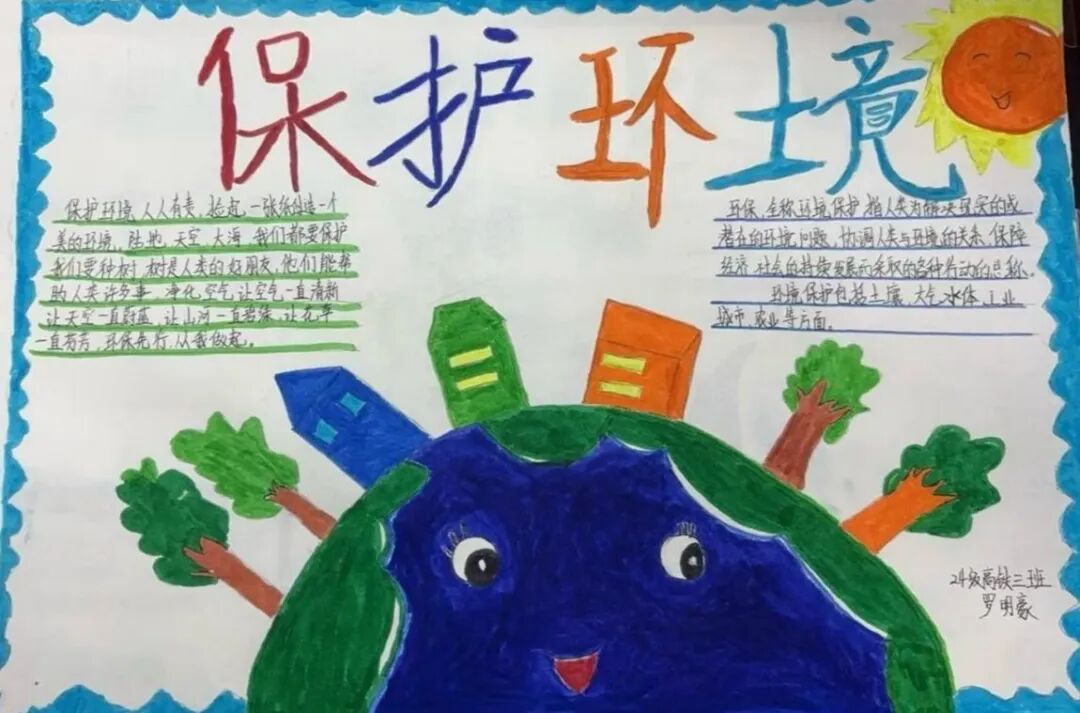 保护环境
保护环境,人人有责,捡起一张纸创造一个
美的环境,陆地,天空,大海,我们都要保护
我们要种树,树是人类的好朋友,他们能帮
助人类许多事,净化空气,让空气一直清新
让天空一直蔚蓝,让山河一直碧绿,让花草
一直芬芳,环保先行,从我做起。
环保,全称环境保护,指人类为解决现实的或
潜在的环境问题,协调人类与环境的关系,保障
经济社会的持续发展而采取的各种行动的总称。
环境保护包括土壤,大气,水体,工业
城市,农业等方面。
24级高铁三班
罗明豪